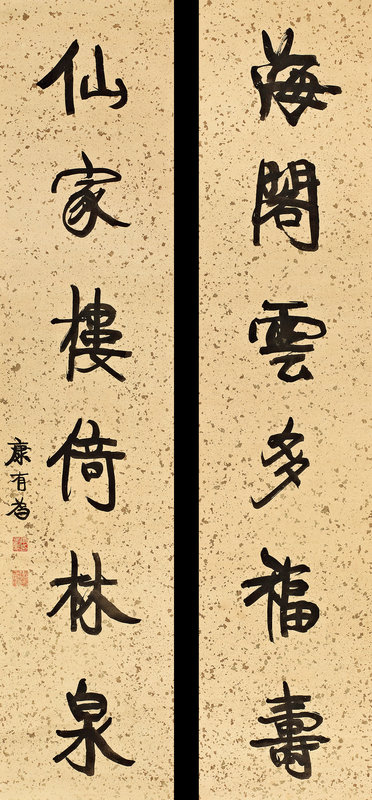 海閣雲多福壽
仙家樓倚林泉
康有為